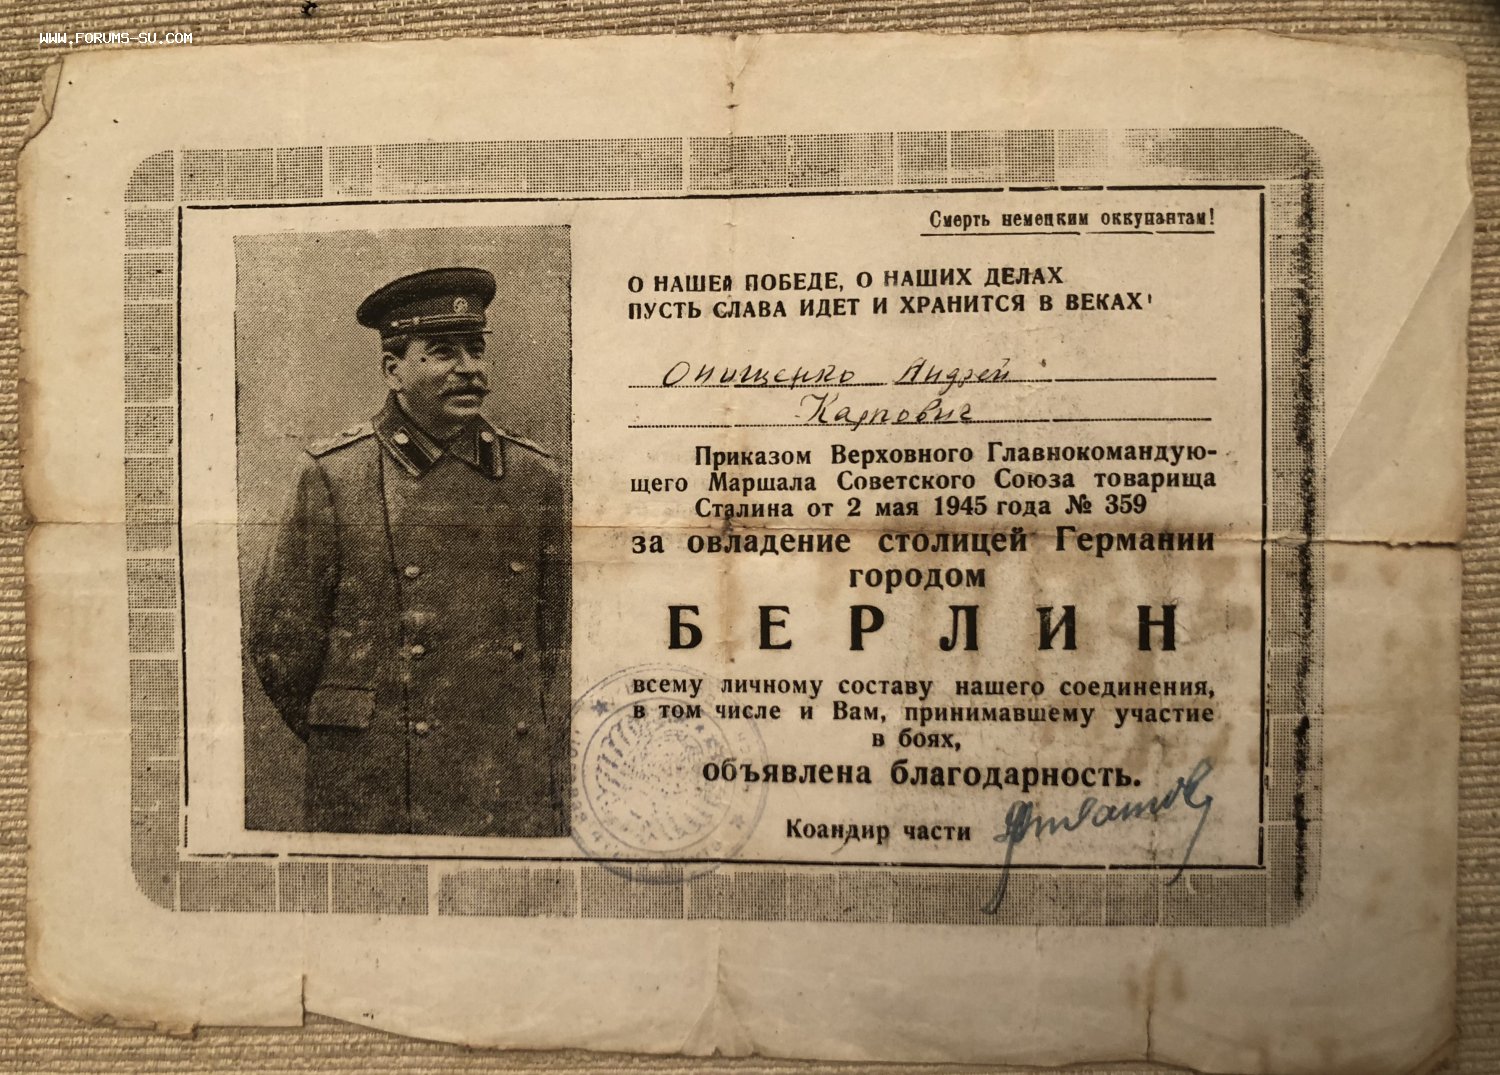 WWW.FORUMS-SU.COM
Смерть немецким оккупантам!
О НАШЕЙ ПОБЕДЕ, О НАШИХ ДЕЛАХ
ПУСТЬ СЛАВА ИДЕТ И ХРАНИТСЯ В ВЕКАХ!
Онищенко Андрей
Карпович
Приказом Верховного Главнокомандую-
щего Маршала Советского Союза товарища
Сталина от 2 мая 1945 года № 359
за овладение столицей Германии
городом
БЕРЛИН
всему личному составу нашего соединения,
в том числе и Вам, принимавшему участие
в боях,
объявлена благодарность.
Коандир части